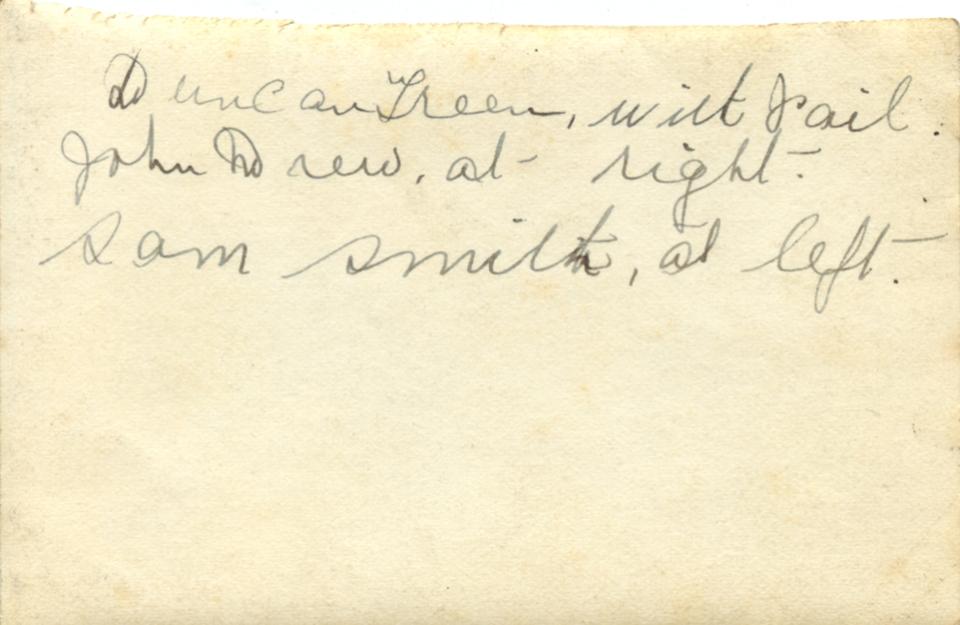 Duncan Green, with Pail.
John Drew, at right.
Sam Smith, at left.